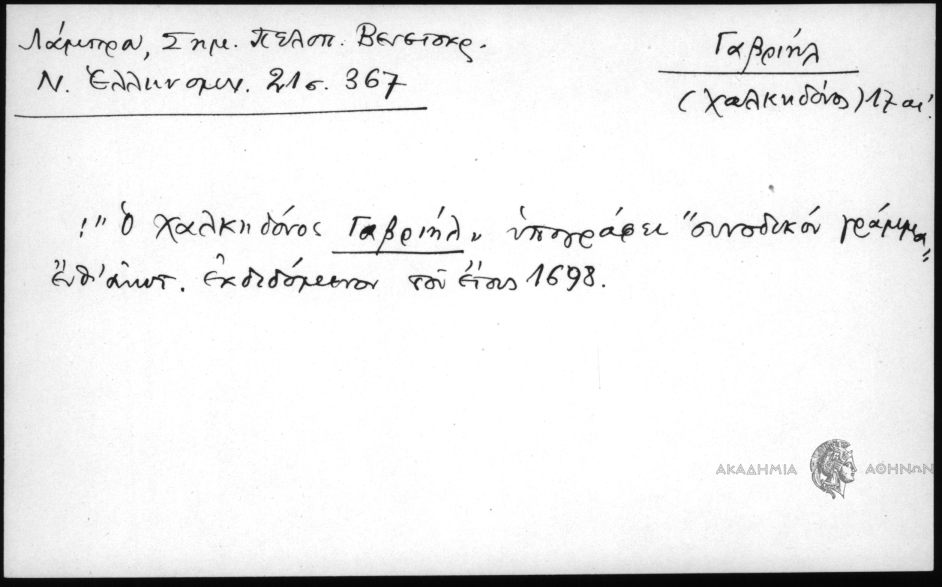 Λάμπρου, Σημ. Πελοπ. Βενετοκρ.
Ν. Ἑλληνομν. 21 σ. 367
Γαβριήλ
(Χαλκηδόνος) 17 αἰ.
"ὁ Χαλκηδόνος Γαβριήλ" ὑπογράφει "συνοδικόν γράμμα"
ἐκδιδόμενον τοῦ ἔτους 1698.
ΑΚΑΔΗΜΙΑ ΑΘΗΝΩΝ